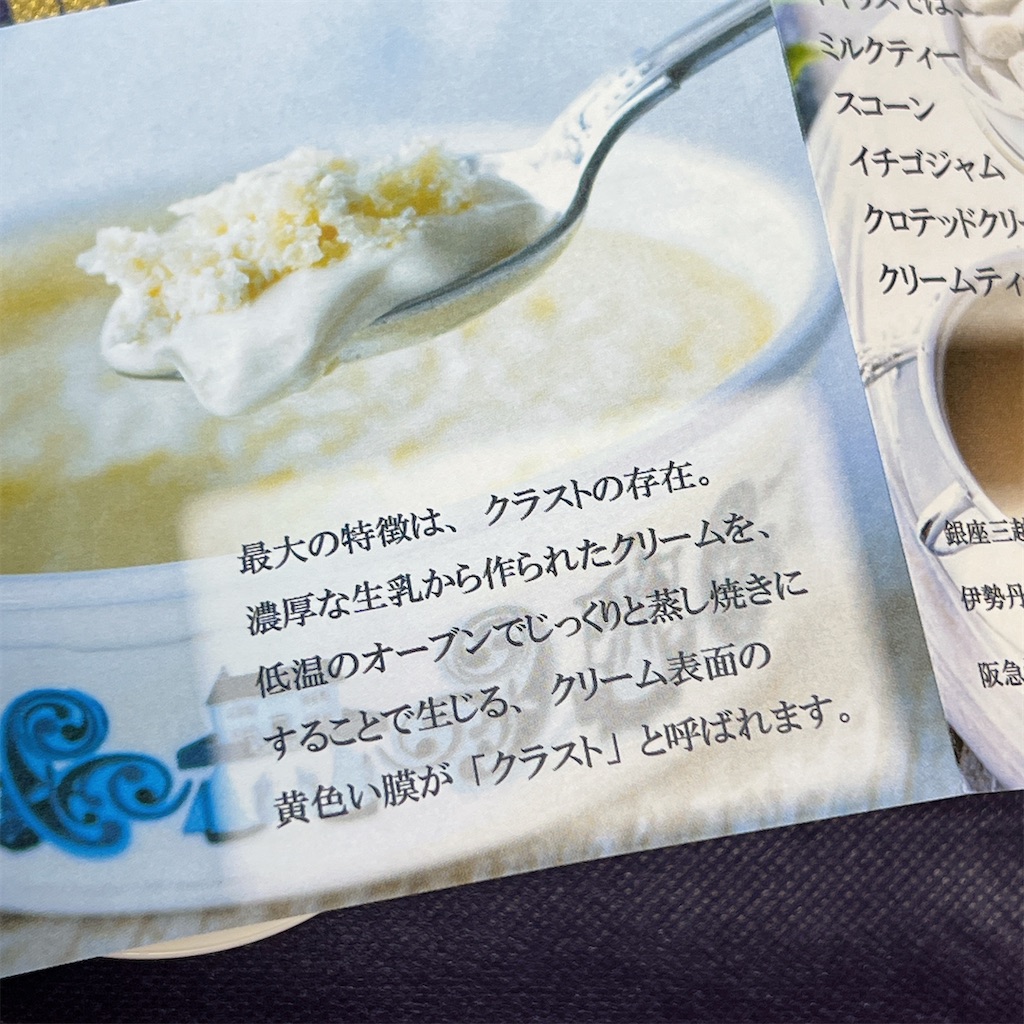 最大の特徴は、クラストの存在。
濃厚な生乳から作られたクリームを、
低温のオーブンでじっくりと蒸し焼きに
することで生じる、クリーム表面の
黄色い膜が「クラスト」と呼ばれます。
では、
ミルクティー
スコーン
イチゴジャム
クロテッドクリー
クリームティ
銀座三越
伊勢丹
阪急